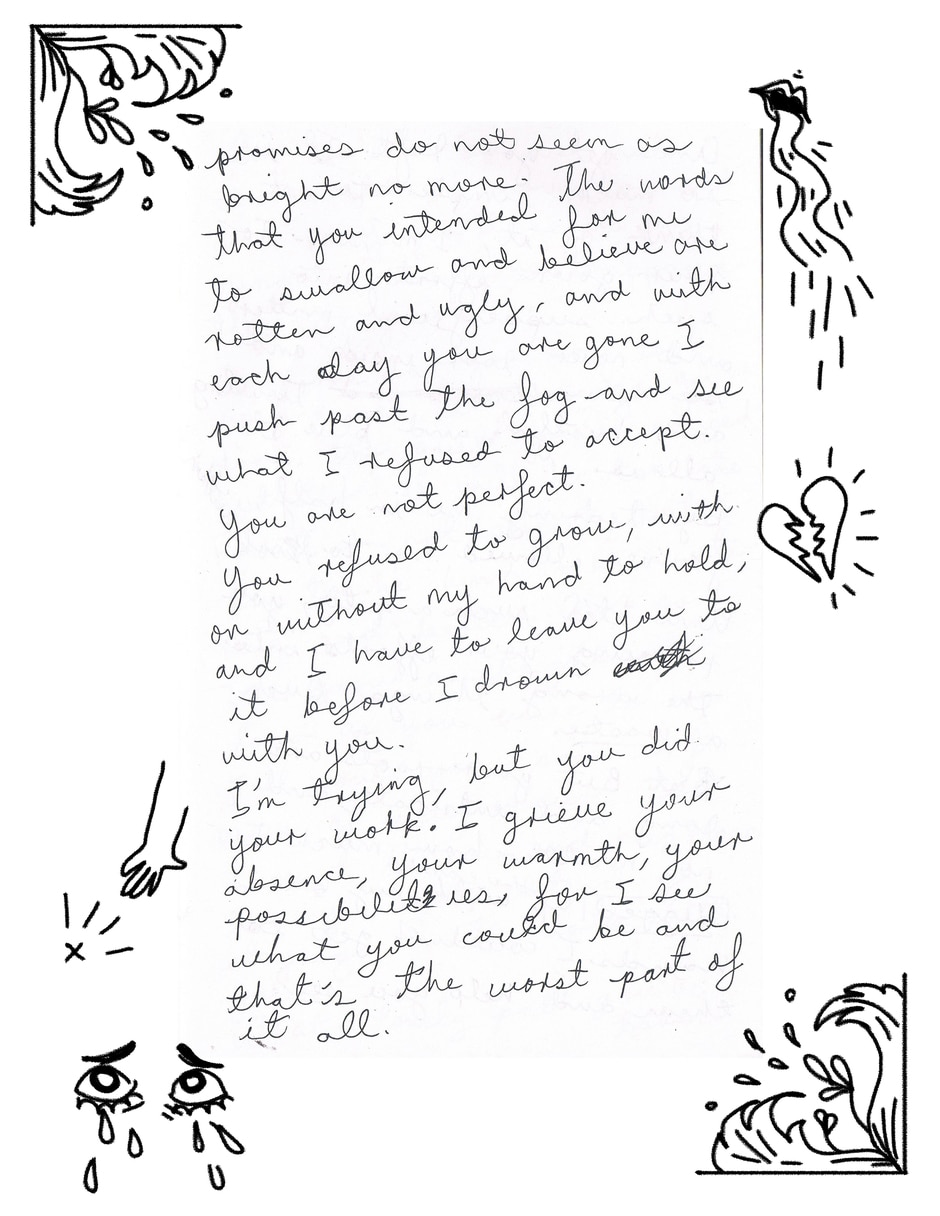 promises do not seem as
bright no more. The words
that you intended for me
to swallow and believe are
rotten and ugly, and with
each day you are gone I
push past the fog and see
what I refused to accept.
You are not perfect.
You refused to grow, with
or without my hand to hold,
and I have to leave you to
it before I drown
with you.
I'm trying, but you did
your work. I grieve your
absence, your warmth, your
possibilities, for I see
what you could be and
that's the worst part of
it all.